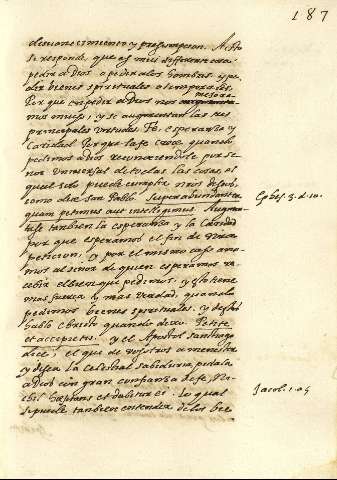 187
desuanecimiento y presumpcion. A esto
se responde, que es mui differente cosa
pedir a Dios, o pedir a los hombres, y pe-
dir bienes spirituales o temporales.
Porque en pedir a Dios nos mejora-
mos mucho, y se augmentan las tres
principales virtudes. Fe, esperanza y
Caridad. Porque la fe crece quando
pedimos a Dios reconociendole por se-
ñor vniversal de todas las cosas, al
qual solo puede cumplir nros
como dice san Pablo. Superabundanter
quam petimus aut intelligimus. Augmen-
tase tambien la esperanza y la Caridad
por que esperamos el fin de nuestra
peticion, y por el mismo caso ama-
mos al señor de quien esperamos re-
cebir el bien que pedimos, y esto tiene
mas fuerza y mas verdad, quando
pedimos bienes spirituales, y desto
hablo christo quando dixo. Petite
et accipietis, y el Apostol santiago
dice, el que de vosotros a menester
y desea la celestial sabiduria, pidala
a Dios con gran confianza de fe,
et dabitur ei. Lo qual
se puede tambien entender de los bie-
Ephes. 3. d. 20.
Jacob. 1. a 5